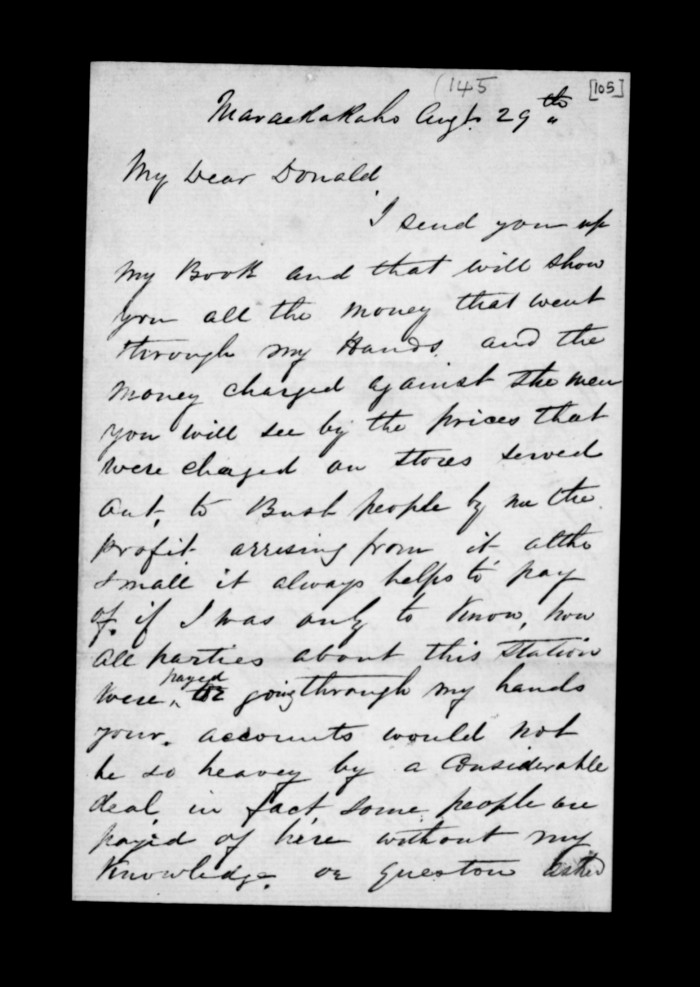 (145 [105]
Maraekakaho Augt. 29th
My Dear Donald
I send you up
my Book and that will show
you all the money that went
through my Hands. and the
money charged against the men
you will see by the prices that
were charged on stores served
out, to Bush people by me the
profit arrising from it altho
small it always helps to pay
of. if I was only to Know, how
all parties about this Station
were, payed going through my hands
your. accounts would not
be so heavey by a Considerable
deal, in fact some people are
payed of here without my
Knowledge. or queston asked